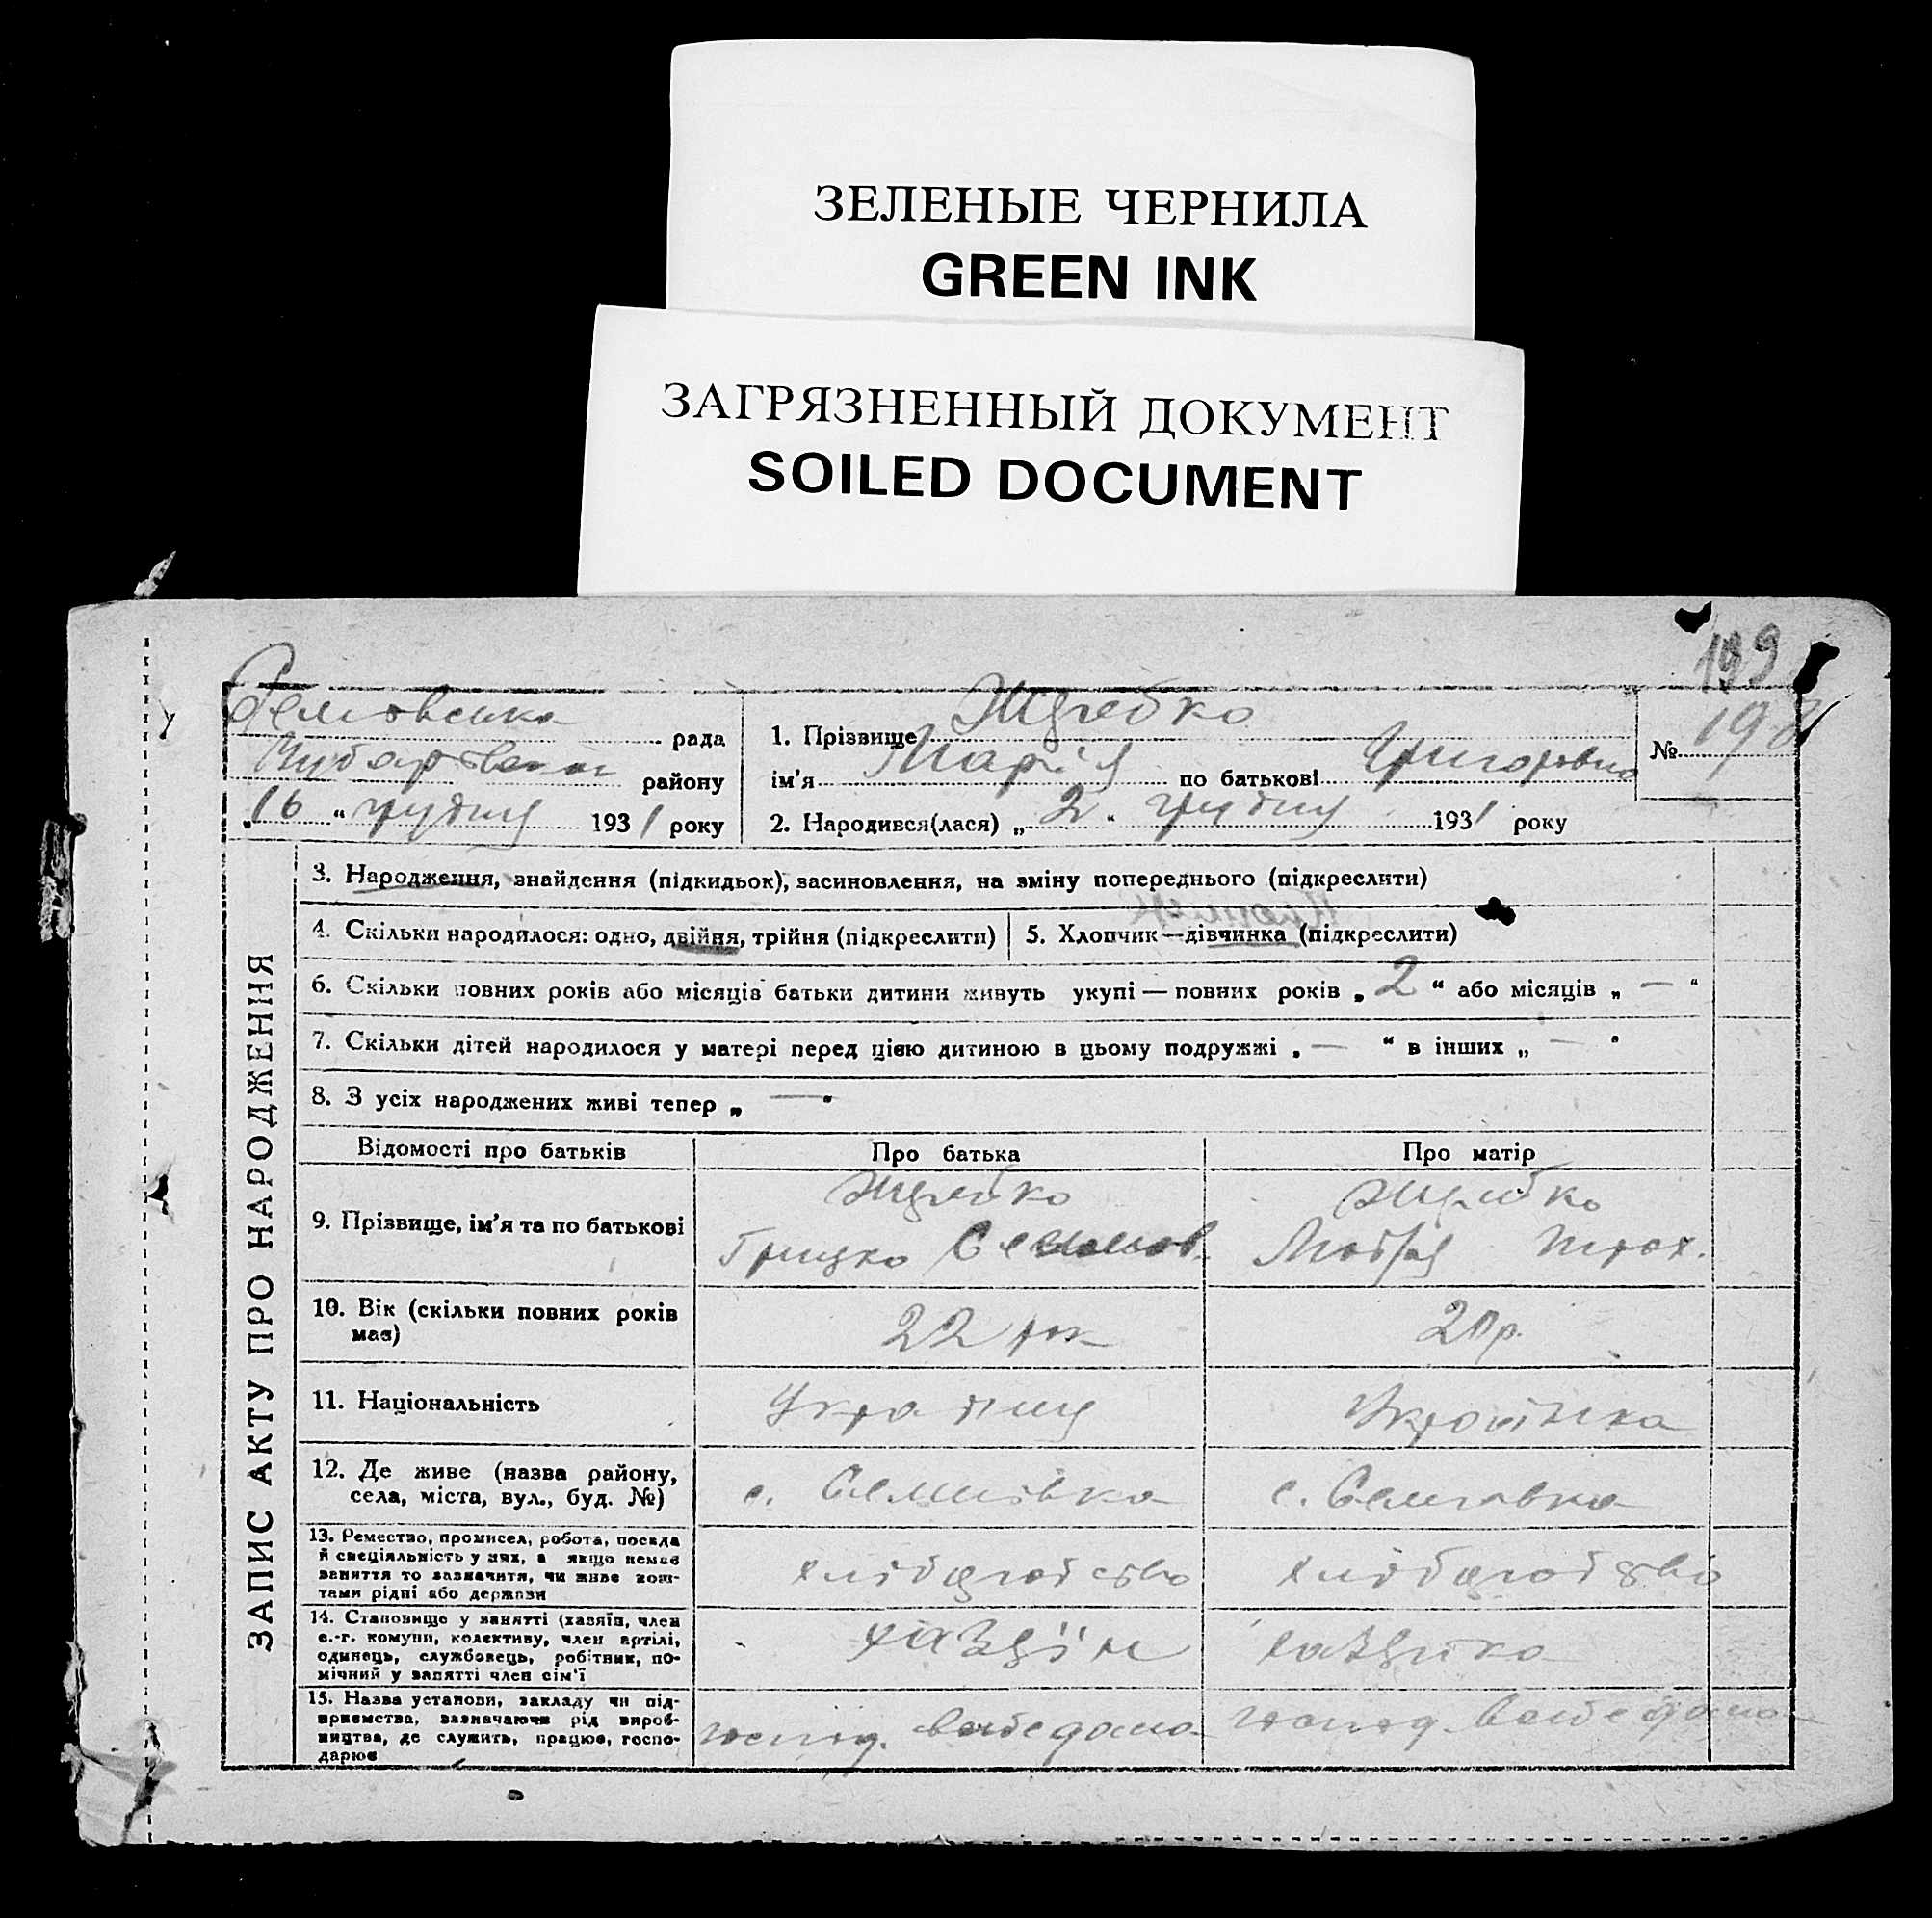 ЗЕЛЕНЫЕ ЧЕРНИЛА
GREEN INK
ЗАГРЯЗНЕННЫЙ ДОКУМЕНТ
SOILED DOCUMENT
199
рада
району
"16" грудня 1931 року
1. Прізвище
ім'я Марія по батькові Григоровна
2. Народився(лася) „2" грудня 1931 року
№ 198
ЗАПИС АКТУ ПРО НАРОДЖЕННЯ
3. Народження, знайдення (підкидьок), засиновлення, на зміну попереднього (підкреслити)
4. Скільки народилося: одно, двійня, трійня (підкреслити)
5. Хлопчик—дівчинка (підкреслити)
6. Скільки повних років або місяців батьки дитини живуть укупі — повних років „2" або місяців „—"
7. Скільки дітей народилося у матері перед цією дитиною в цьому подружжі „—" в інших „—"
8. З усіх народжених живі тепер „—"
Відомості про батьків Про батька Про матір
9. Прізвище, ім'я та по батькові
Грицко
10. Вік (скільки повних років має)
22 рок 20 р.
11. Національність
Українка
12. Де живе (назва району, села, міста, вул., буд. №)
с. Семиовка с. Семиовка
13. Ремество, промисел, робота, посада
й спеціяльність у них, а якщо немає
заняття то зазначити, чи живе кош-
тами рідні або держави
хліборобство хліборобство
14. Становище у занятті (хазяїн, член
с.-г. комуни, колективу, член артілі,
одинець, службовець, робітник, по-
мічний у занятті член сім'ї
хазяїн хазяйка
15. Назва установи, закладу чи під-
приємства, зазначаючи рід вироб-
ництва, де служить, працює, госпо-
дарює